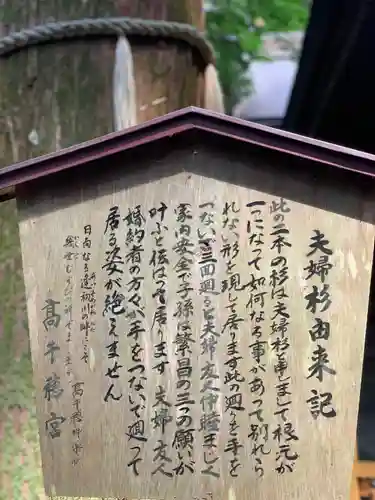 夫婦杉由来記
此の二本の杉は夫婦杉と申しまして根元が
一つになって如何なる事があっても別れら
れない形を現して居ります此の廻りを手を
つないで三回廻ると夫婦友人仲睦ましく
家内安全で子孫は繁昌の三つの願いが
叶ふと伝はって居ります 夫婦友人
婚約者の方々が手をつないで廻って
居る姿が絶えません
高千穂宮